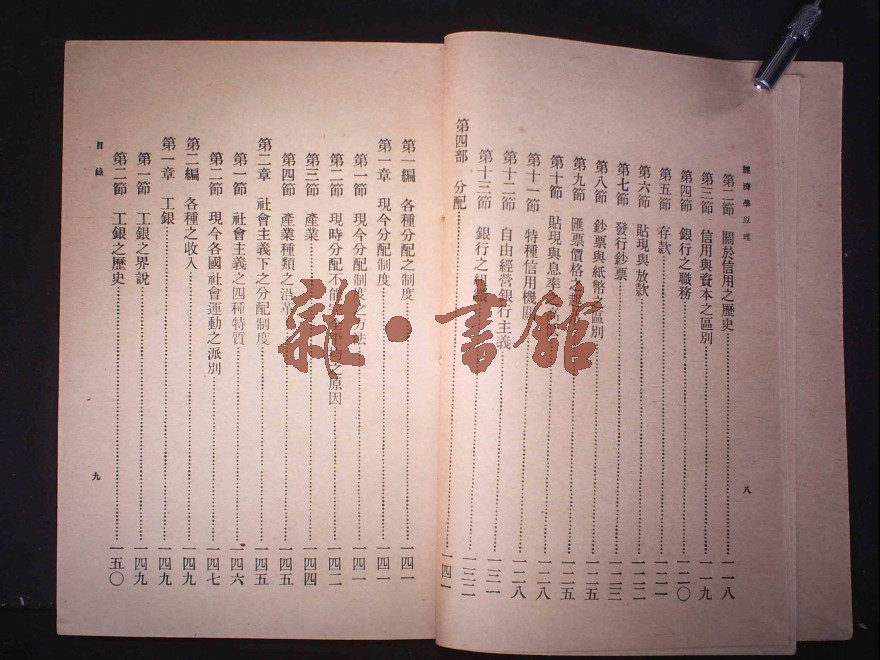 經濟學原理
第二節 關於信用之歷史……一一八
第三節 信用與資本之區別……一一九
第四節 銀行之職務……一二〇
第五節 存款……一二一
第六節 貼現與放款……一二二
第七節 發行鈔票……一二三
第八節 鈔票與紙幣之區別……一二五
第九節 匯票價格之……一二五
第十節 貼現與息率……一二八
第十一節 特種信用機關……一二八
第十二節 自由經營銀行主義……一三一
第十三節 銀行之組織……一三二
第四部 分配……一四一
八
第一編 各種分配之制度……一四一
第一章 現今分配制度……一四一
第一節 現今分配制度之方法……一四一
第二節 現時分配不能……之原因……一四二
第三節 產業……一四四
第四節 產業種類之沿革……一四五
第二章 社會主義下之分配制度……一四五
第一節 社會主義之四種特質……一四六
第二節 現今各國社會運動之派別……一四七
第二編 各種之收入……一四九
第一章 工銀……一四九
第一節 工銀之界說……一四九
第二節 工銀之歷史……一五〇
目錄
九
雜·書館